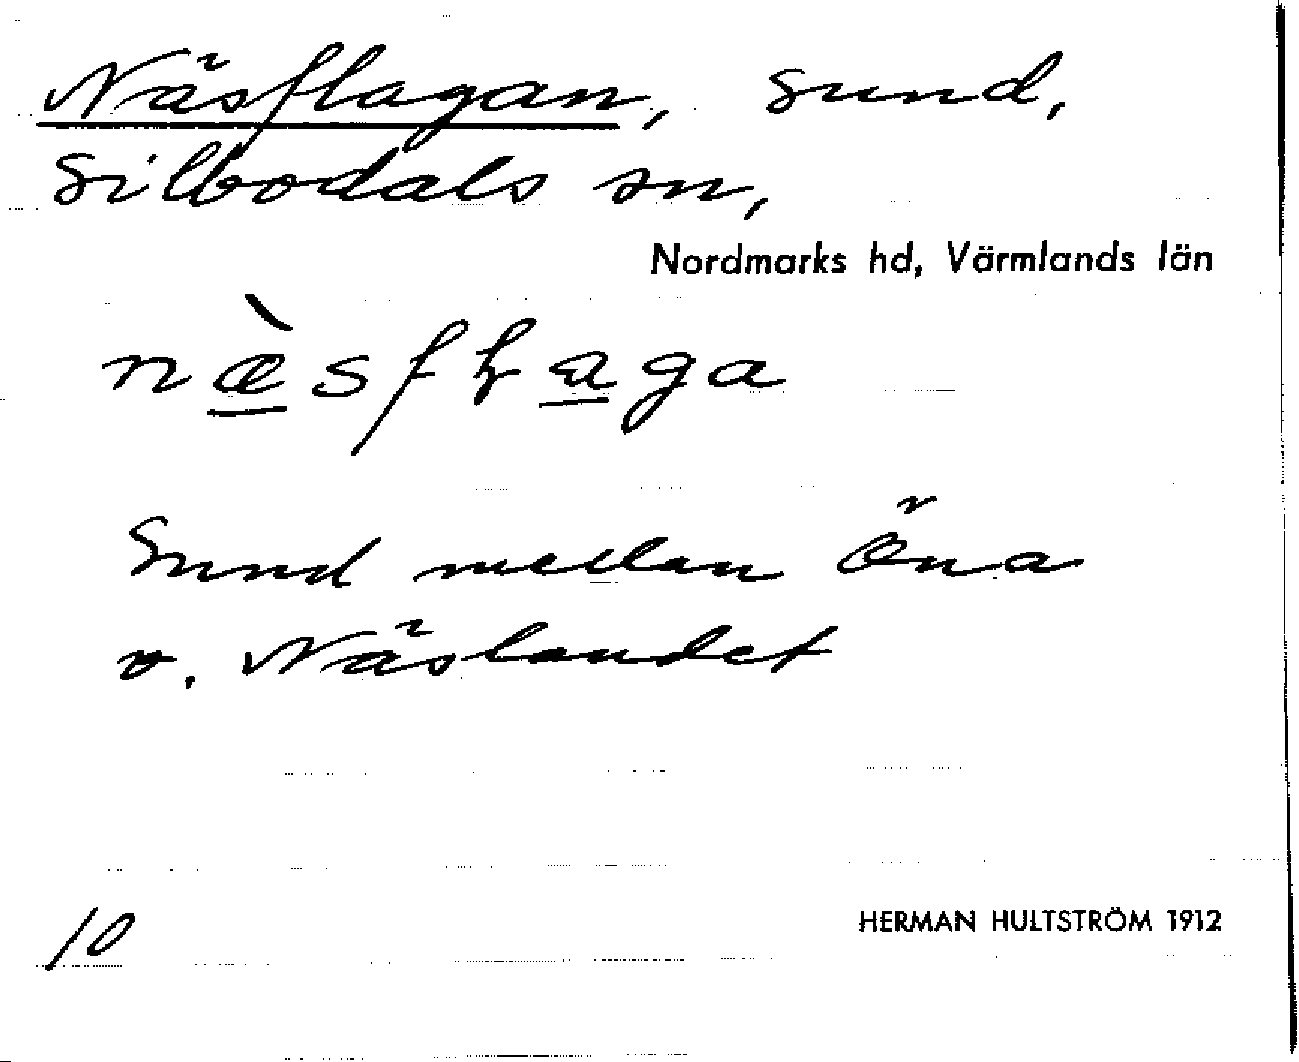 Näsflagan, sund,
Silbodals sn,
Nordmarks hd, Värmlands län
næ̀sfɫaga
Sund mellan Öna
o. Näslandet
10
HERMAN HULTSTRÖM 1912